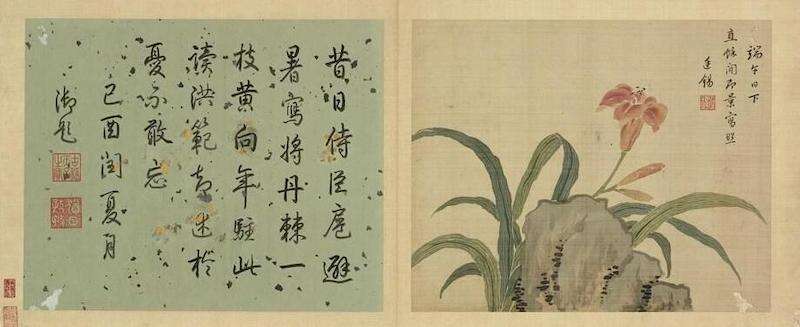 端午日下
直餘閒即景寫照
廷錫
昔日侍臣扈避
暑寫將丹棘一
枝黃向年駐此
讀洪範述於
憂不敢忘
己酉閏夏月
御題